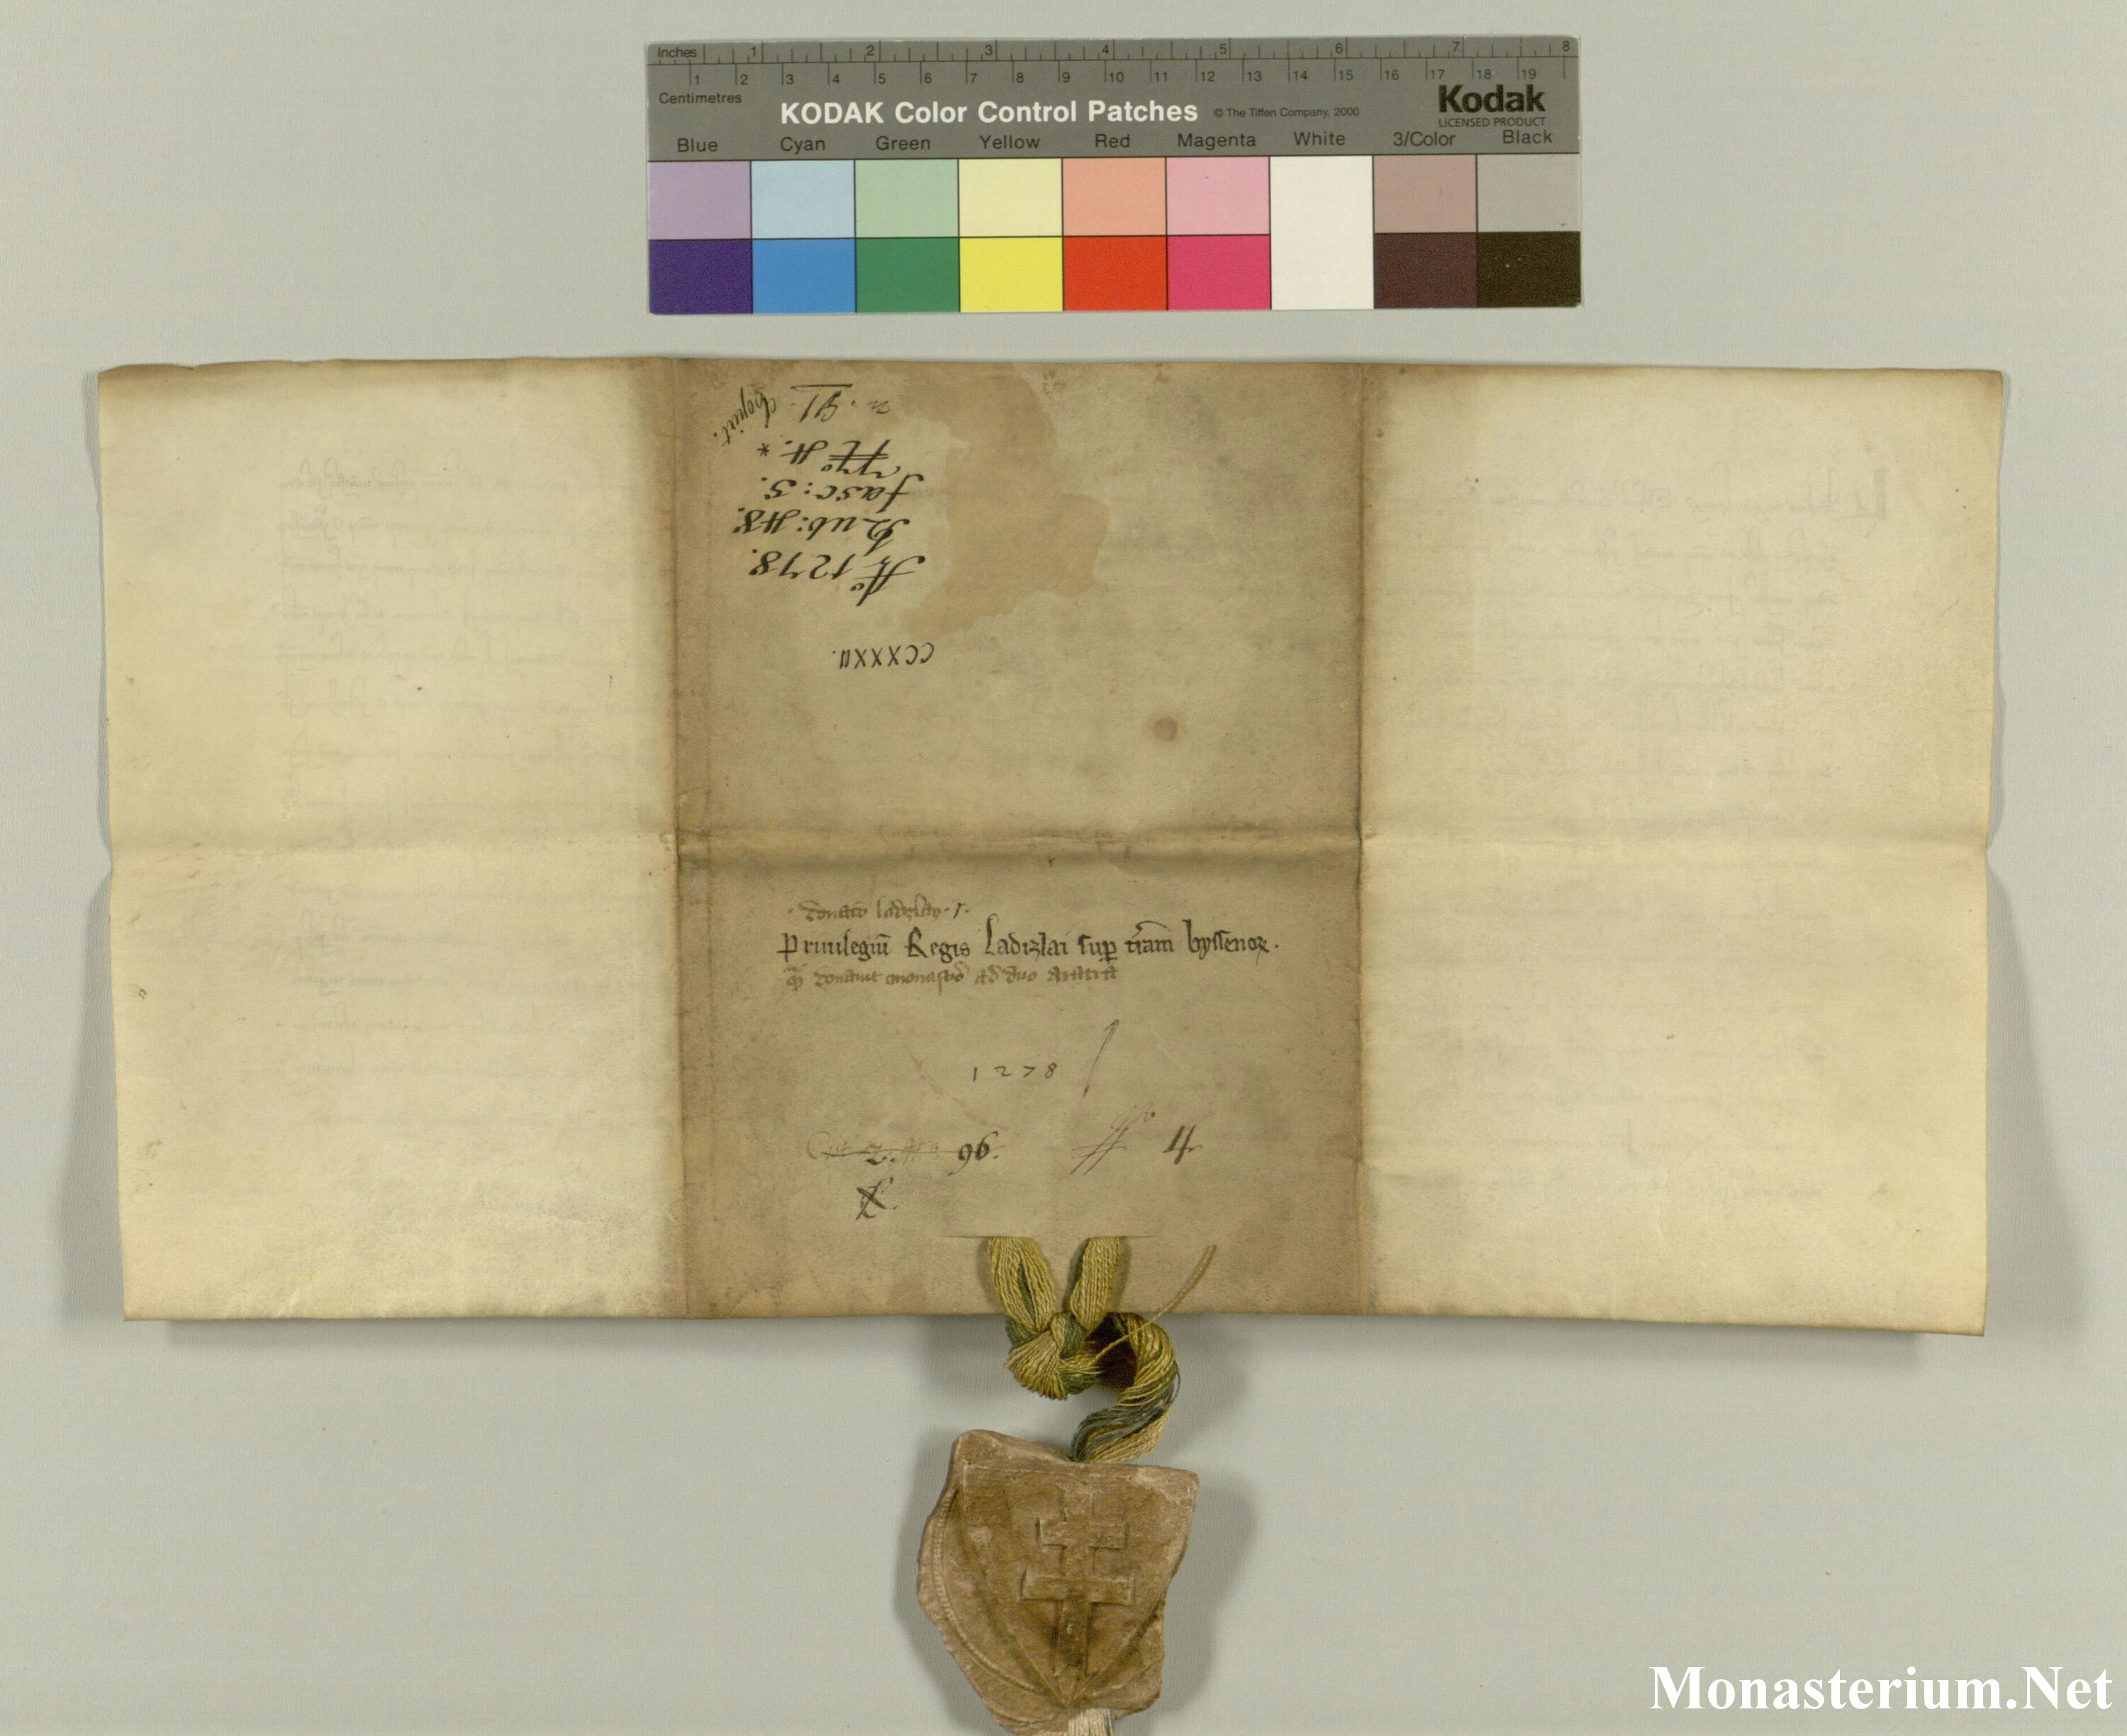 Inches 1 2 3 4 5 6 7 8
1 2 3 4 5 6 7 8 9 10 11 12 13 14 15 16 17 18 19
Centimetres
KODAK Color Control Patches © The Tiffen Company, 2000 Kodak
LICENSED PRODUCT
Blue Cyan Green Yellow Red Magenta White 3/Color Black
CCXXXII.
Aō 1278.
Rub: 48.
fasc: 5.
Nrō 4. *
n. 91. Copiat.
donatio ladizlay
Priuilegiū Regis Ladizlai sup t'ram byssenoꝝ.
donauit ad duo aratra
1278
2. 96. Nº 4
Monasterium.Net